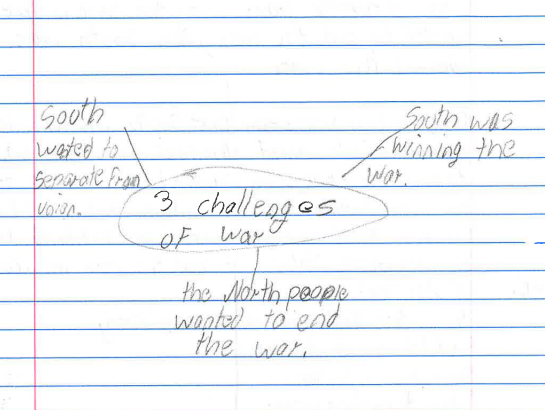 South
wated to
separate From
union.
South was
winning the
war.
3 challenges
OF war
the North people
wanted to end
the war.